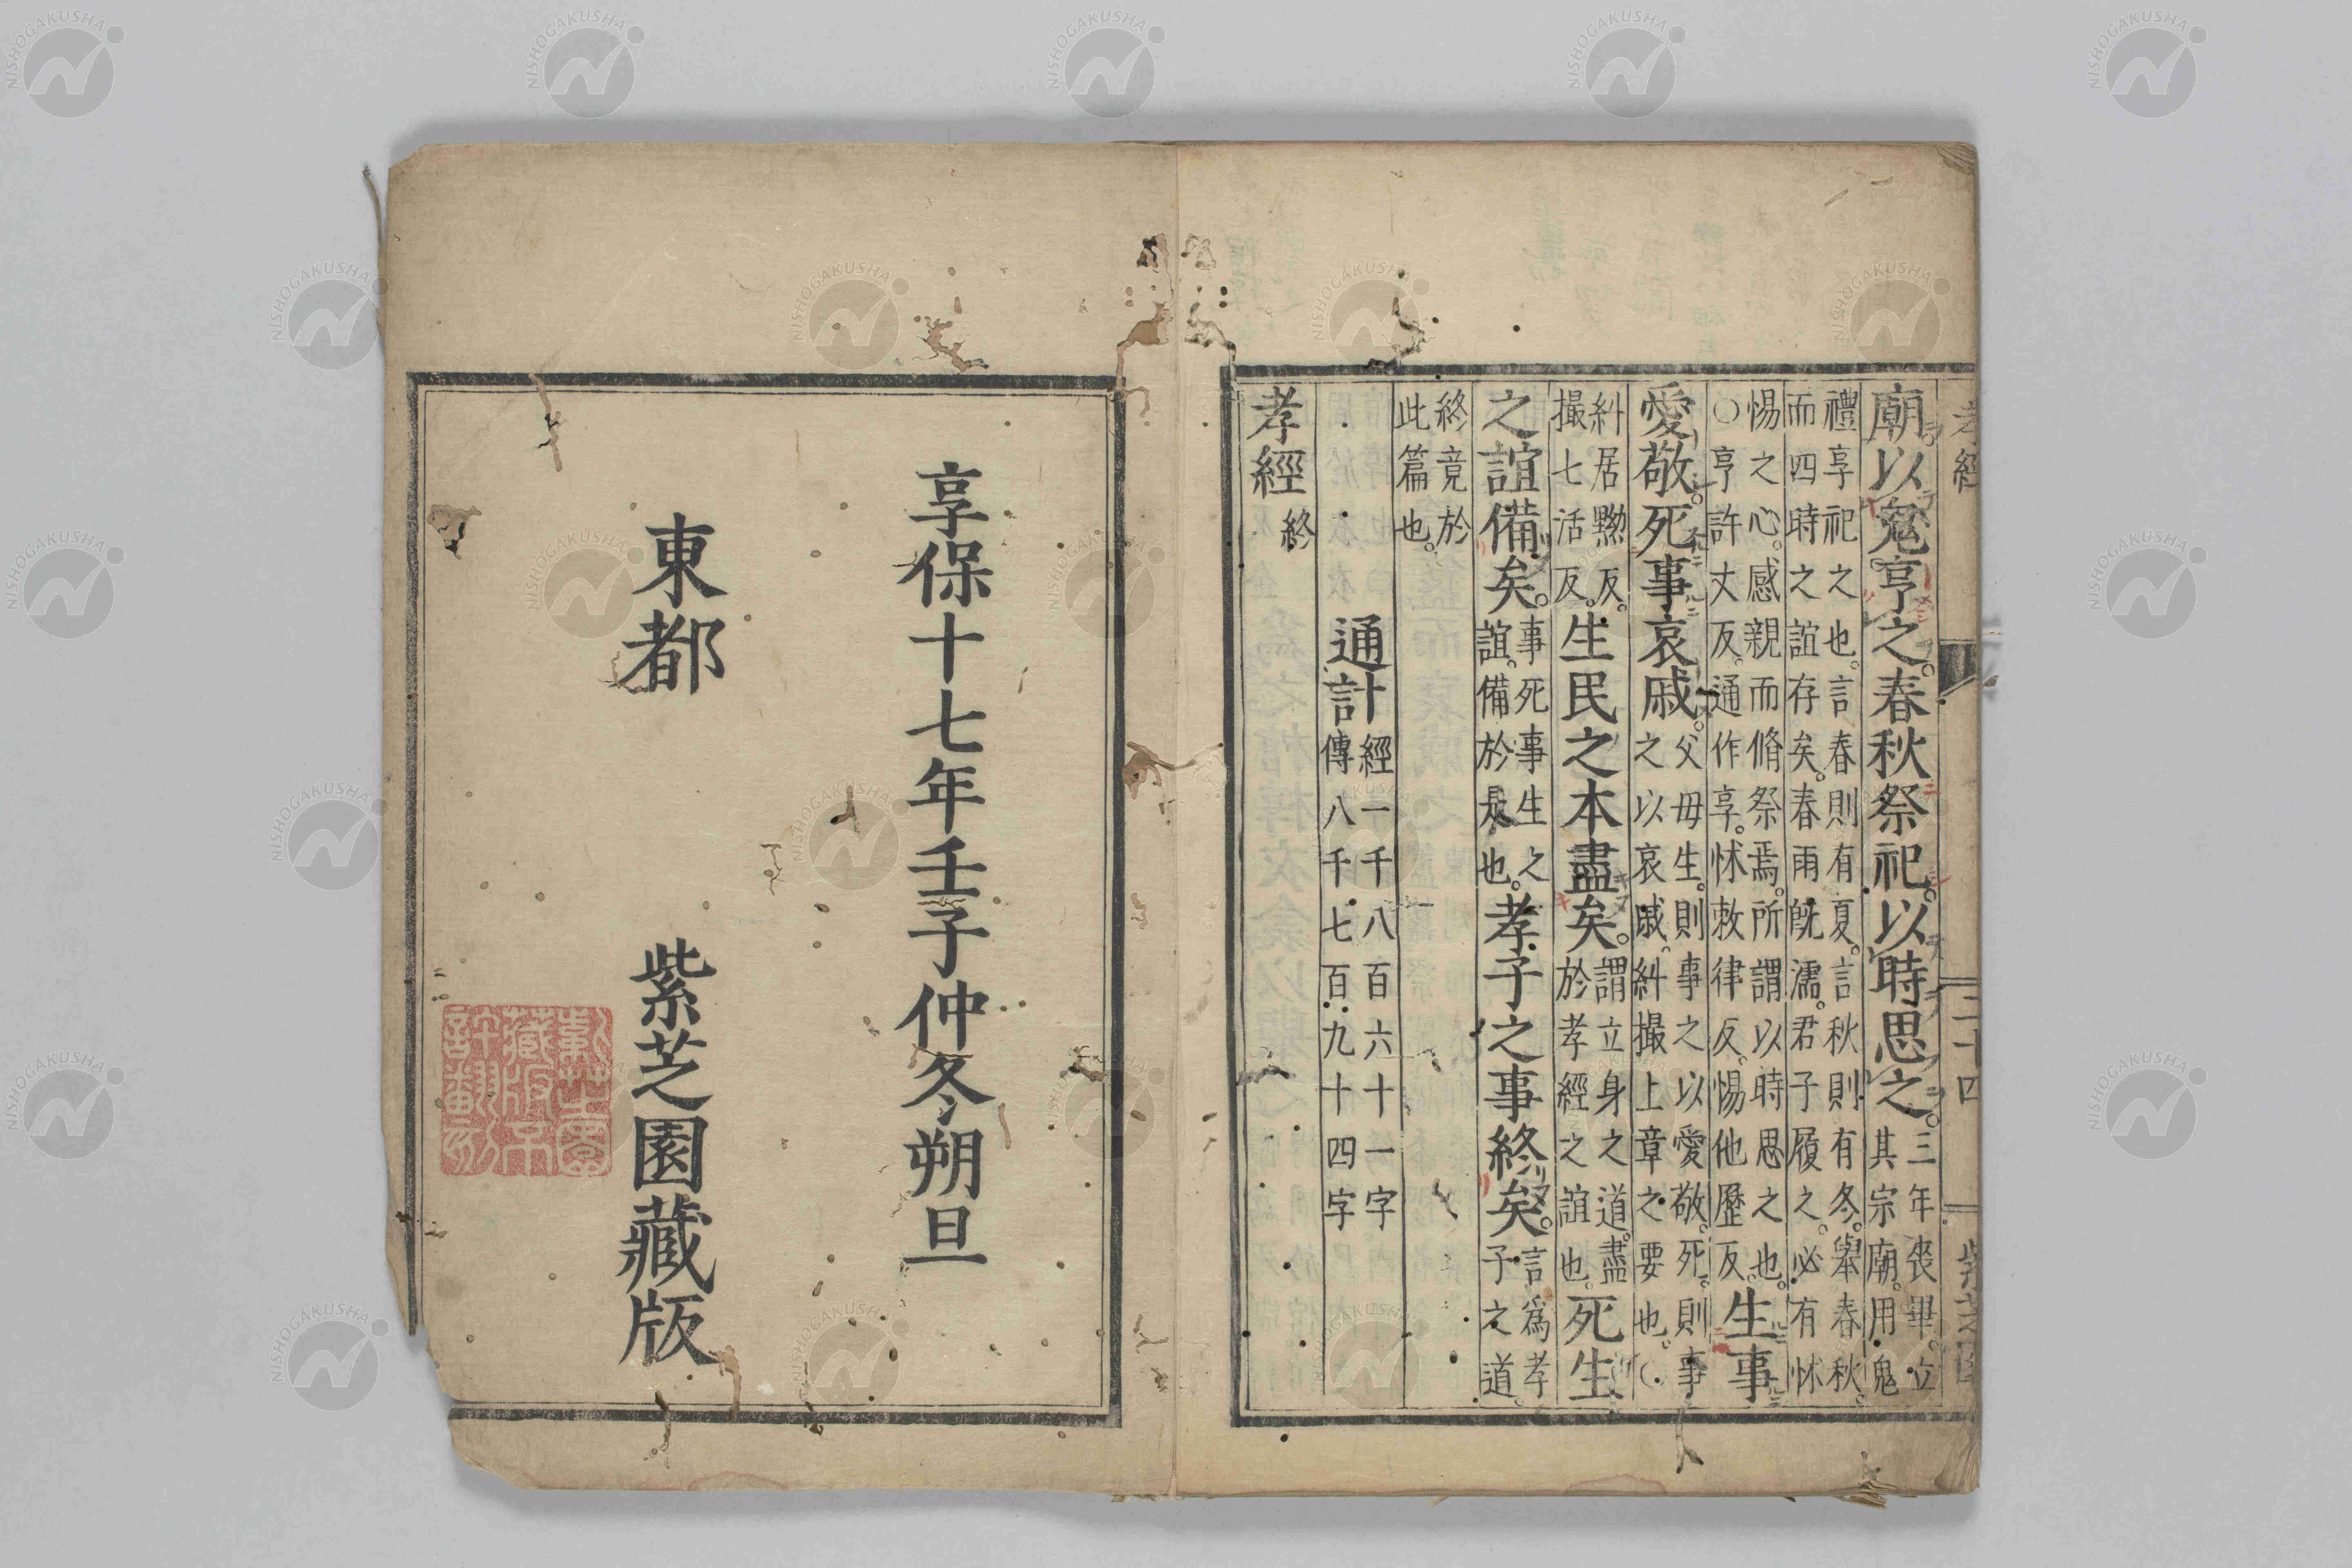 孝經 三十四 紫芝園
廟。以鬼亨之。春秋祭祀。以時思之。三年喪畢。立其宗廟。用鬼
禮享祀之也。言春則有夏。言秋則有冬。舉春秋
而四時之誼存矣。春雨旣濡。君子履之。必有怵
惕之心。感親而脩祭焉。所謂以時思之也。
○亨許丈反。通作享。怵敕律反。惕他歷反。生事
愛敬。死事哀戚。父母生。則事之以愛敬。死。則事之以哀戚。糾撮上章之要也。○
糾居黝反。撮七活反。生民之本盡矣。謂立身之道。盡於孝經之誼也。死生
之誼備矣。事死事生之誼。備於是也。孝子之事終矣。言爲孝子之道
終竟於此篇也。
通計經一千八百六十一字
傳八千七百九十四字
孝經終
享保十七年壬子仲冬朔旦
東都 紫芝園藏版
NISHOGAKUSHA